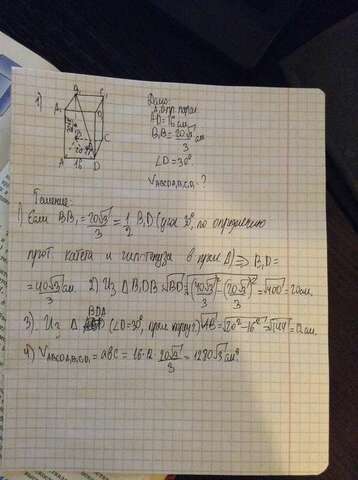 1)
B₁ C₁
A₁ D₁
B C
A 16 D
Дано:
A₁D пр. парал.
AD = 16 см.
B₁B = 20√3/3 см
∠D = 30°
V ABCDA₁B₁C₁D₁ - ?
Решение:
1) Если BB₁ = 20√3/3 = 1/2 B₁D (угол 30°, по определению
прот. катета и гипотенуза в прям. Δ) ⇒ B₁D =
= 40√3/3 см. 2) Из Δ B₁DB √BD = √(40√3/3)² - (20√3/3)² = √400 = 20 см.
3) Из Δ BDA (∠D = 30°, прям.) √AB = √20² - 16² = √144 = 12 см.
4) V ABCDA₁B₁C₁D₁ = abc = 16·12·20√3/3 = 1280√3 см³